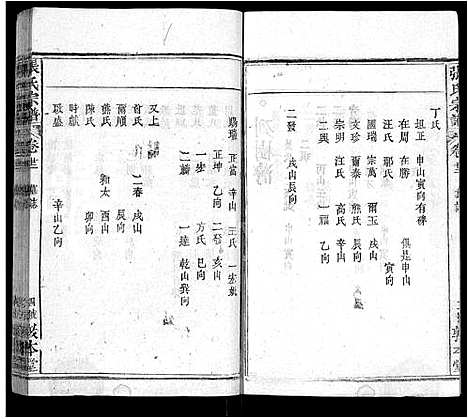 張氏宗譜
卷廿二
墓誌
丁氏
祖正 申山寅向有碑
在周 在勝 俱是申山
汪氏 邢氏 寅向
國瑞 宗萬 爾玉 戌山
文珍 爾泰 熊氏 辰向
宗明 汪氏 高氏 辛山
乙向
二發 戌山辰向
張氏宗譜
卷廿二
墓誌
錫瑞 正富 辛山 王氏 一宏
正坤 乙向 二發 亥山
一步 方氏 巳向
二麟 一達 乾山巽向
又上
爾川 二春 戌山
爾順 辰向
熊氏 和太 酉山
陳氏 卯向
時獻
啟盛 辛山乙向
敦本堂